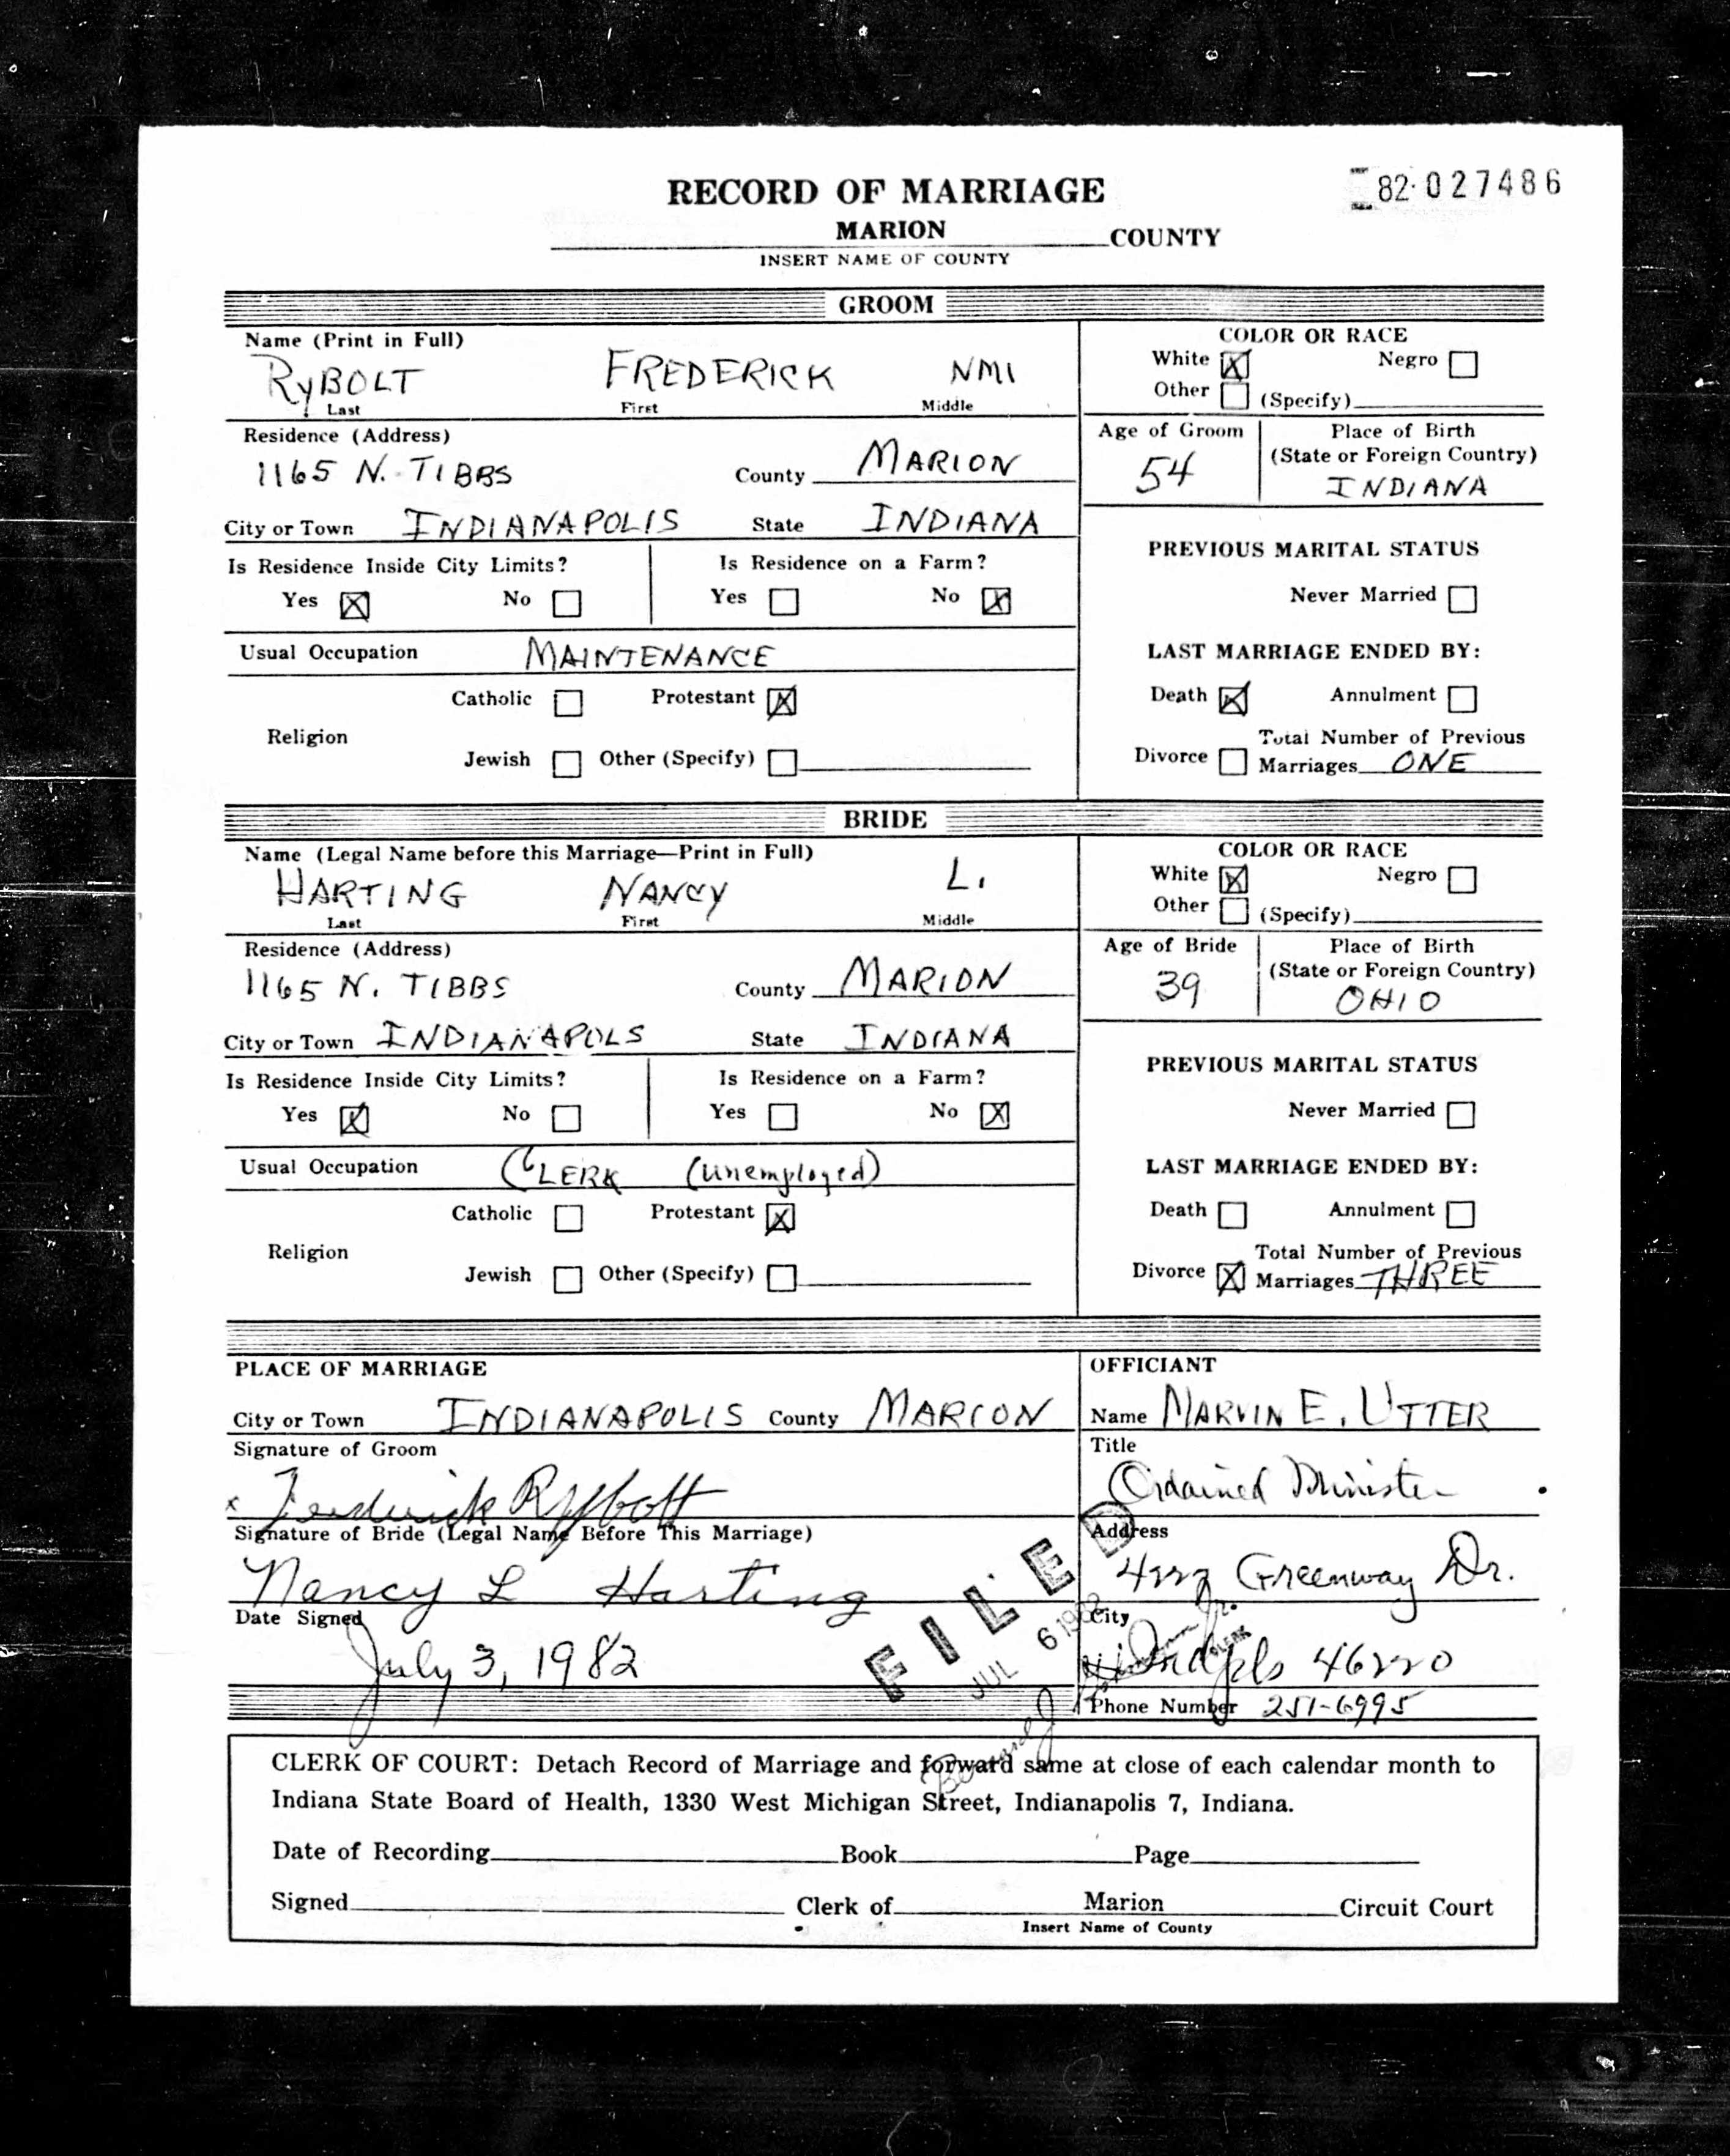 82-027486
RECORD OF MARRIAGE
MARION COUNTY
INSERT NAME OF COUNTY
GROOM
Name (Print in Full)
RYBOLT FREDERICK NMI
Last First Middle
COLOR OR RACE
White ☒ Negro ☐
Other ☐ (Specify)
Residence (Address)
1165 N. TIBBS County MARION
City or Town INDIANAPOLIS State INDIANA
Age of Groom
54
Place of Birth
(State or Foreign Country)
INDIANA
Is Residence Inside City Limits? Is Residence on a Farm?
Yes ☒ No ☐ Yes ☐ No ☒
Usual Occupation MAINTENANCE
Catholic ☐ Protestant ☒
Religion
Jewish ☐ Other (Specify) ☐
PREVIOUS MARITAL STATUS
Never Married ☐
LAST MARRIAGE ENDED BY:
Death ☒ Annulment ☐
Total Number of Previous
Divorce ☐ Marriages ONE
BRIDE
Name (Legal Name before this Marriage—Print in Full)
HARTING NANCY L.
Last First Middle
COLOR OR RACE
White ☒ Negro ☐
Other ☐ (Specify)
Residence (Address)
1165 N. TIBBS County MARION
City or Town INDIANAPOLS State INDIANA
Age of Bride
39
Place of Birth
(State or Foreign Country)
OHIO
Is Residence Inside City Limits? Is Residence on a Farm?
Yes ☒ No ☐ Yes ☐ No ☒
Usual Occupation CLERK (unemployed)
Catholic ☐ Protestant ☒
Religion
Jewish ☐ Other (Specify) ☐
PREVIOUS MARITAL STATUS
Never Married ☐
LAST MARRIAGE ENDED BY:
Death ☐ Annulment ☐
Total Number of Previous
Divorce ☒ Marriages THREE
PLACE OF MARRIAGE
City or Town INDIANAPOLIS County MARION
Signature of Groom
x Frederick Rybolt
Signature of Bride (Legal Name Before This Marriage)
Nancy L Harting
Date Signed
July 3, 1982
OFFICIANT
Name MARVIN E. UTTER
Title
Ordained Minister
Address
Greenway Dr.
City
Indpls 46220
Phone Number 251-6995
FILED
JUL 6 1982
CLERK
CLERK OF COURT: Detach Record of Marriage and forward same at close of each calendar month to
Indiana State Board of Health, 1330 West Michigan Street, Indianapolis 7, Indiana.
Date of Recording Book Page
Signed Clerk of Marion Circuit Court
Insert Name of County